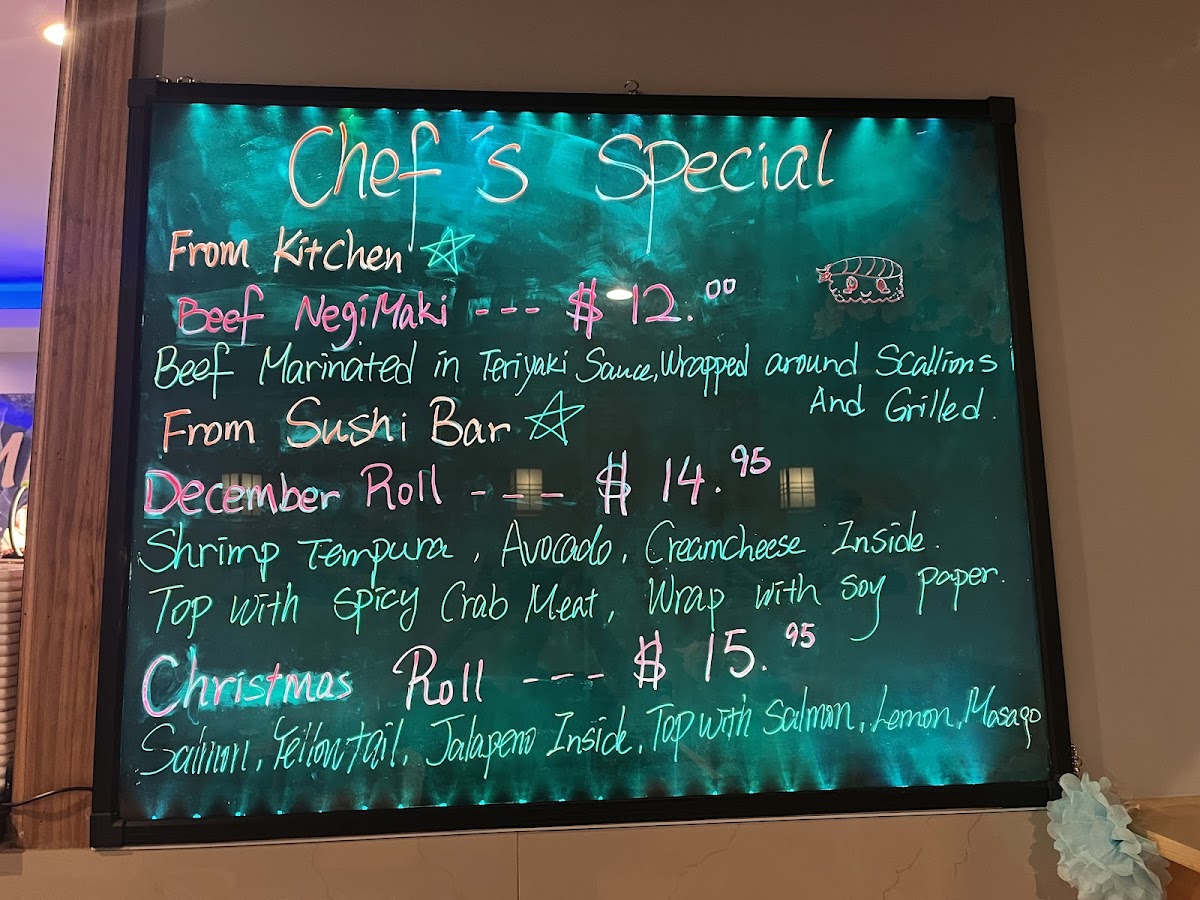 Chef's Special
From Kitchen
Beef NegiMaki --- $ 12.00
Beef Marinated in Teriyaki Sauce, Wrapped around Scallions
And Grilled.
From Sushi Bar
December Roll --- $ 14.95
Shrimp Tempura, Avocado, Creamcheese Inside.
Top with Spicy Crab Meat, Wrap with soy paper.
Christmas Roll --- $ 15.95
Salmon, Yellowtail, Jalapeno Inside, Top with Salmon, Lemon, Masago